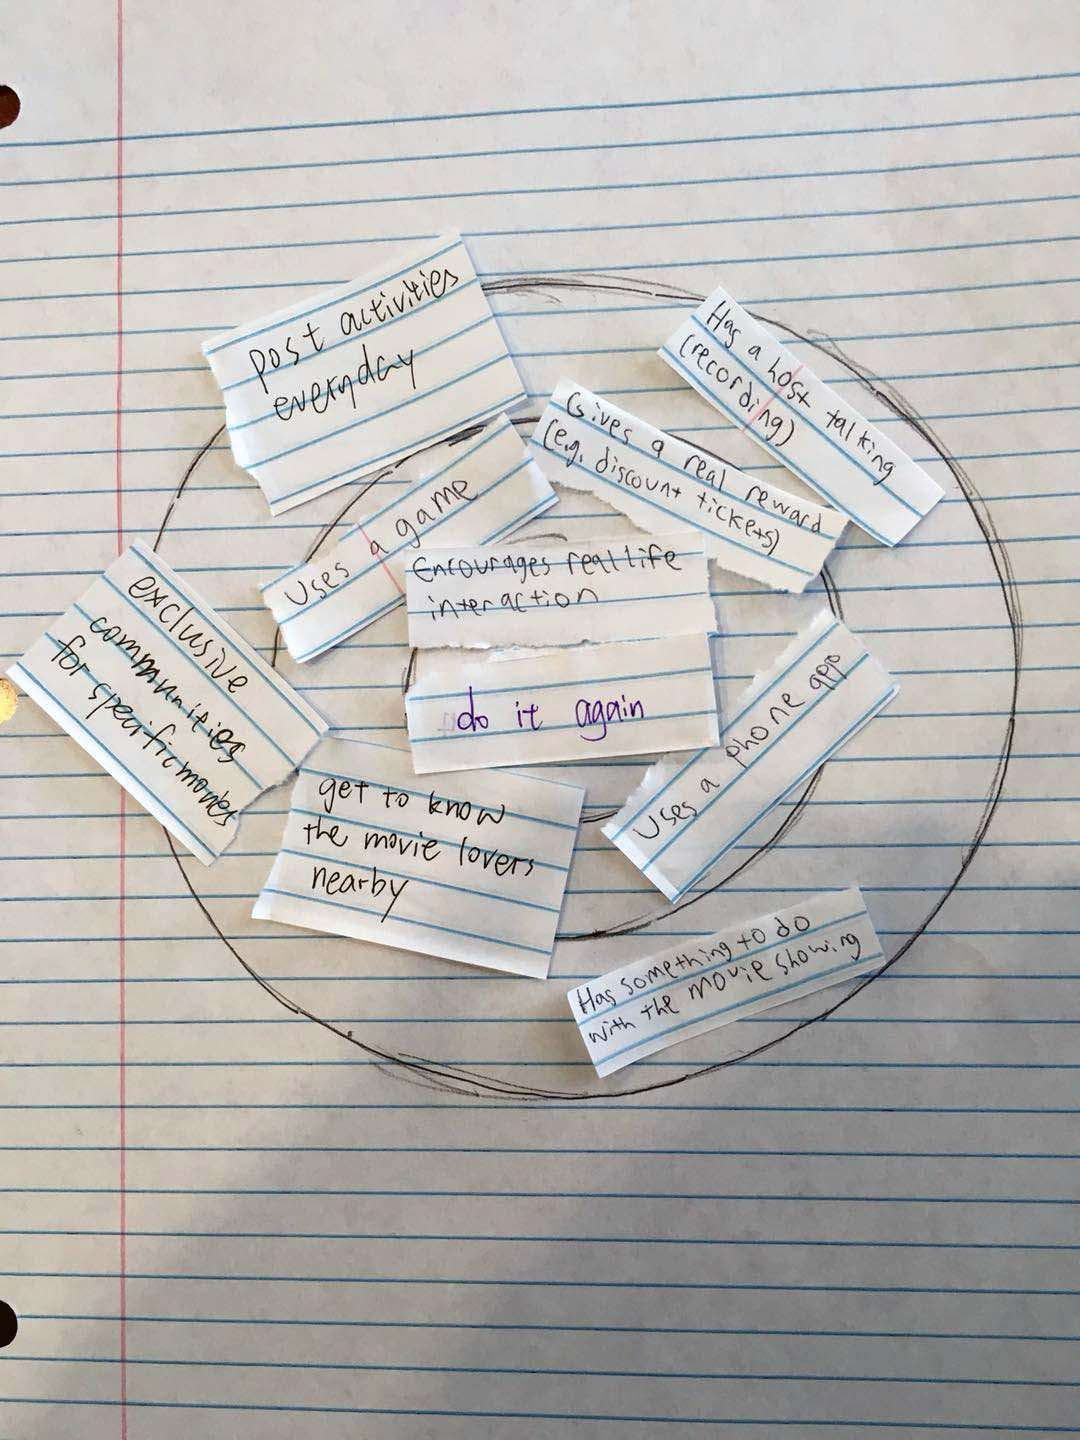 post activities
everyday
Has a host talking
(recording)
Gives a real reward
(e.g. discount tickets)
Uses a game
Encourages real life
interaction
exclusive
communities
for specific movies
do it again
Uses a phone app
get to know
the movie lovers
nearby
Has something to do
with the movie showing